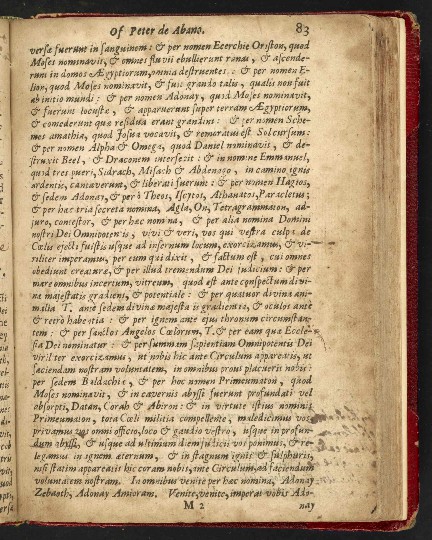 Of Peter de Abano. 83
versæ fuerunt in sanguinem: & per nomen Ecerchie Oriston, quod
Moses nominavit, & omnes fluvii ebullierunt ranas, & ascende-
runt in domos Ægyptiorum, omnia destruentes: & per nomen E-
lion, quod Moses nominavit, & fuit grando talis, qualis non fuit
ab initio mundi: & per nomen Adonay, quod Moses nominavit,
& fuerunt locustæ, & apparuerunt super terram Ægyptiorum,
& comederunt quæ residua erant grandini: & per nomen Sche-
mes amathia, quod Josua vocavit, & remoratus est Sol cursum:
& per nomen Alpha & Omega, quod Daniel nominavit, & de-
struxit Beel, & Draconem interfecit: & in nomine Emmanuel,
quod tres pueri, Sidrach, Misach & Abdenago, in camino ignis
ardentis, cantaverunt, & liberati fuerunt: & per nomen Hagios,
& sedem Adonay, & per ô Theos, Iscytos, Athanatos, Paracletus;
& per hæc tria secreta nomina, Agla, On, Tetragrammaton, ad-
juro, contestor, & per hæc nomina, & per alia nomina Domini
nostri Dei Omnipotentis, vivi & veri, vos qui vestra culpa de
Cœlis ejecti fuistis usque ad infernum locum, exorcizamus, & vi-
riliter imperamus, per eum qui dixit, & factum est, cui omnes
obediunt creaturæ, & per illud tremendum Dei judicium: & per
mare omnibus incertum, vitreum, quod est ante conspectum divi-
næ majestatis gradiens, & potentiale: & per quatuor divina ani-
malia T. ante sedem divinæ majestatis gradientia, & oculos ante
& retrò habentia: & per ignem ante ejus thronum circumstan-
tem: & per sanctos Angelos Cœlorum, T. & per eam quæ Eccle-
sia Dei nominatur: & per summam sapientiam Omnipotentis Dei
viriliter exorcizamus, ut nobis hic ante Circulum appareatis, ut
faciendam nostram voluntatem, in omnibus prout placuerit nobis:
per sedem Baldachiæ, & per hoc nomen Primeumaton, quod
Moses nominavit, & in cavernis abyssi fuerunt profundati vel
absorpti, Datan, Corah & Abiron: & in virtute istius nominis
Primeumaton, tota Cœli militia compellente, maledicimus vos,
privamus vos omni officio, loco & gaudio vestro, usque in profun-
dum abyssi, & usque ad ultimum diem judicii vos ponimus, & re-
legamus in ignem æternum, & in stagnum ignis & sulphuris,
nisi statim appareatis hic coram nobis, ante Circulum, ad faciendum
voluntatem nostram. In omnibus venite per hæc nomina, Adonay
Zebaoth, Adonay Amioram. Venite, venite, imperat vobis Ado-
M 2 nay